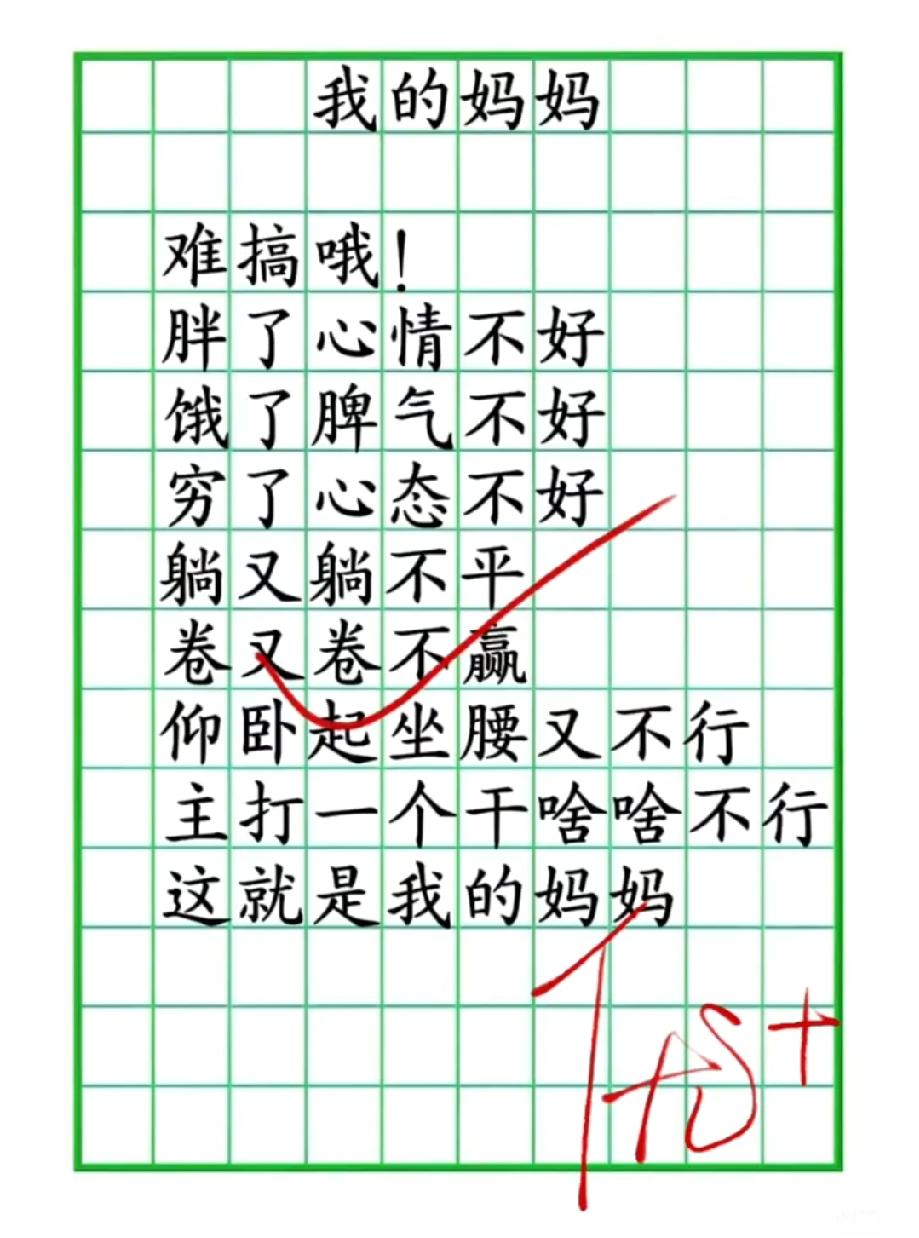 我的妈妈
难搞哦！
胖了心情不好
饿了脾气不好
穷了心态不好
躺又躺不平
卷又卷不赢
仰卧起坐腰又不行
主打一个干啥啥不行
这就是我的妈妈
优+